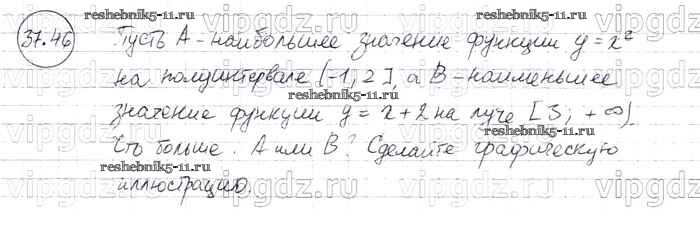 37.46
reshebnik5-11.ru
reshebnik5-11.ru
Пусть A - наибольшее значение функции y = x²
на полуинтервале (-1; 2], а B - наименьшее
reshebnik5-11.ru
значение функции y = x + 2 на луче [3; +∞)
reshebnik5-11.ru
Что больше: A или B? Сделайте графическую
reshebnik5-11.ru
иллюстрацию.
vipgdz.ru vipgdz.ru vipgdz.ru vipgdz.ru